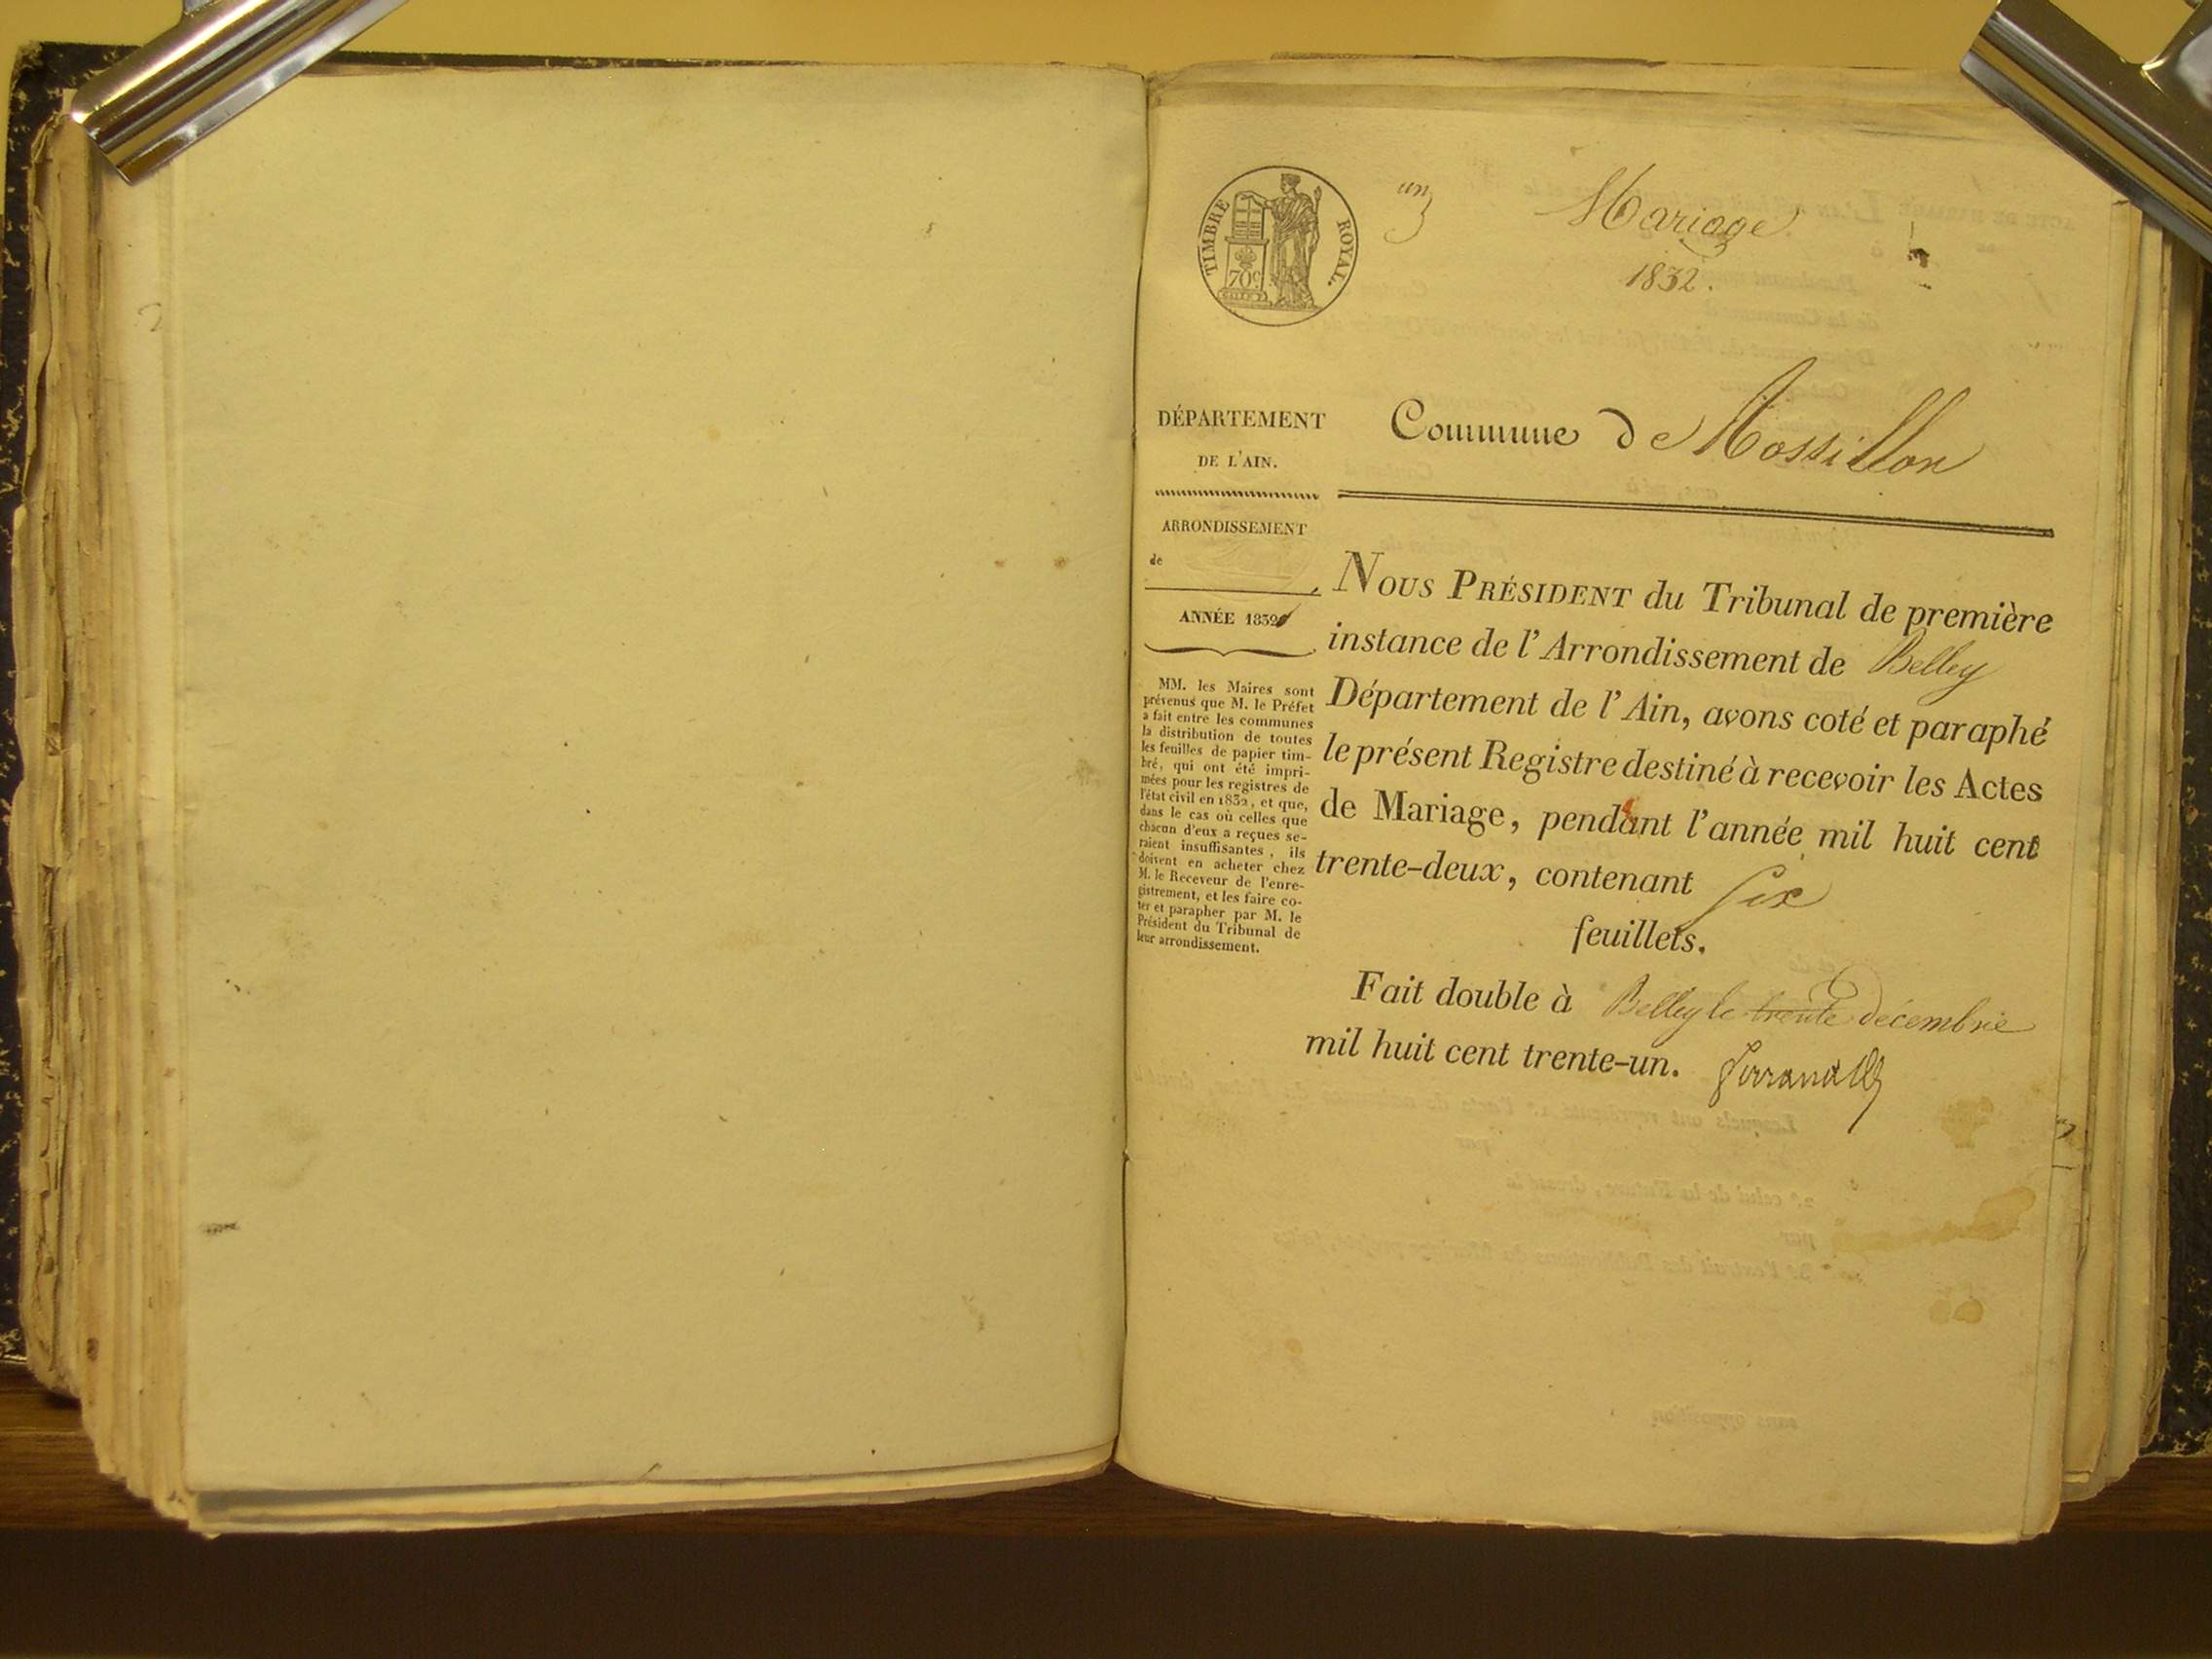 TIMBRE ROYAL.
70c
un
Mariage
1832.
DÉPARTEMENT
DE L'AIN.
Commune de Rossillon
ARRONDISSEMENT
de
ANNÉE 1832
MM. les Maires sont
prévenus que M. le Préfet
a fait entre les communes
la distribution de toutes
les feuilles de papier tim-
bré, qui ont été impri-
mées pour les registres de
l'état civil en 1832, et que,
dans le cas où celles que
chacun d'eux a reçues se-
raient insuffisantes, ils
doivent en acheter chez
M. le Receveur de l'enre-
gistrement, et les faire co-
ter et parapher par M. le
Président du Tribunal de
leur arrondissement.
NOUS PRÉSIDENT du Tribunal de première
instance de l'Arrondissement de Belley
Département de l'Ain, avons coté et paraphé
le présent Registre destiné à recevoir les Actes
de Mariage, pendant l'année mil huit cent
trente-deux, contenant six
feuillets.
Fait double à Belley le trente décembre
mil huit cent trente-un.